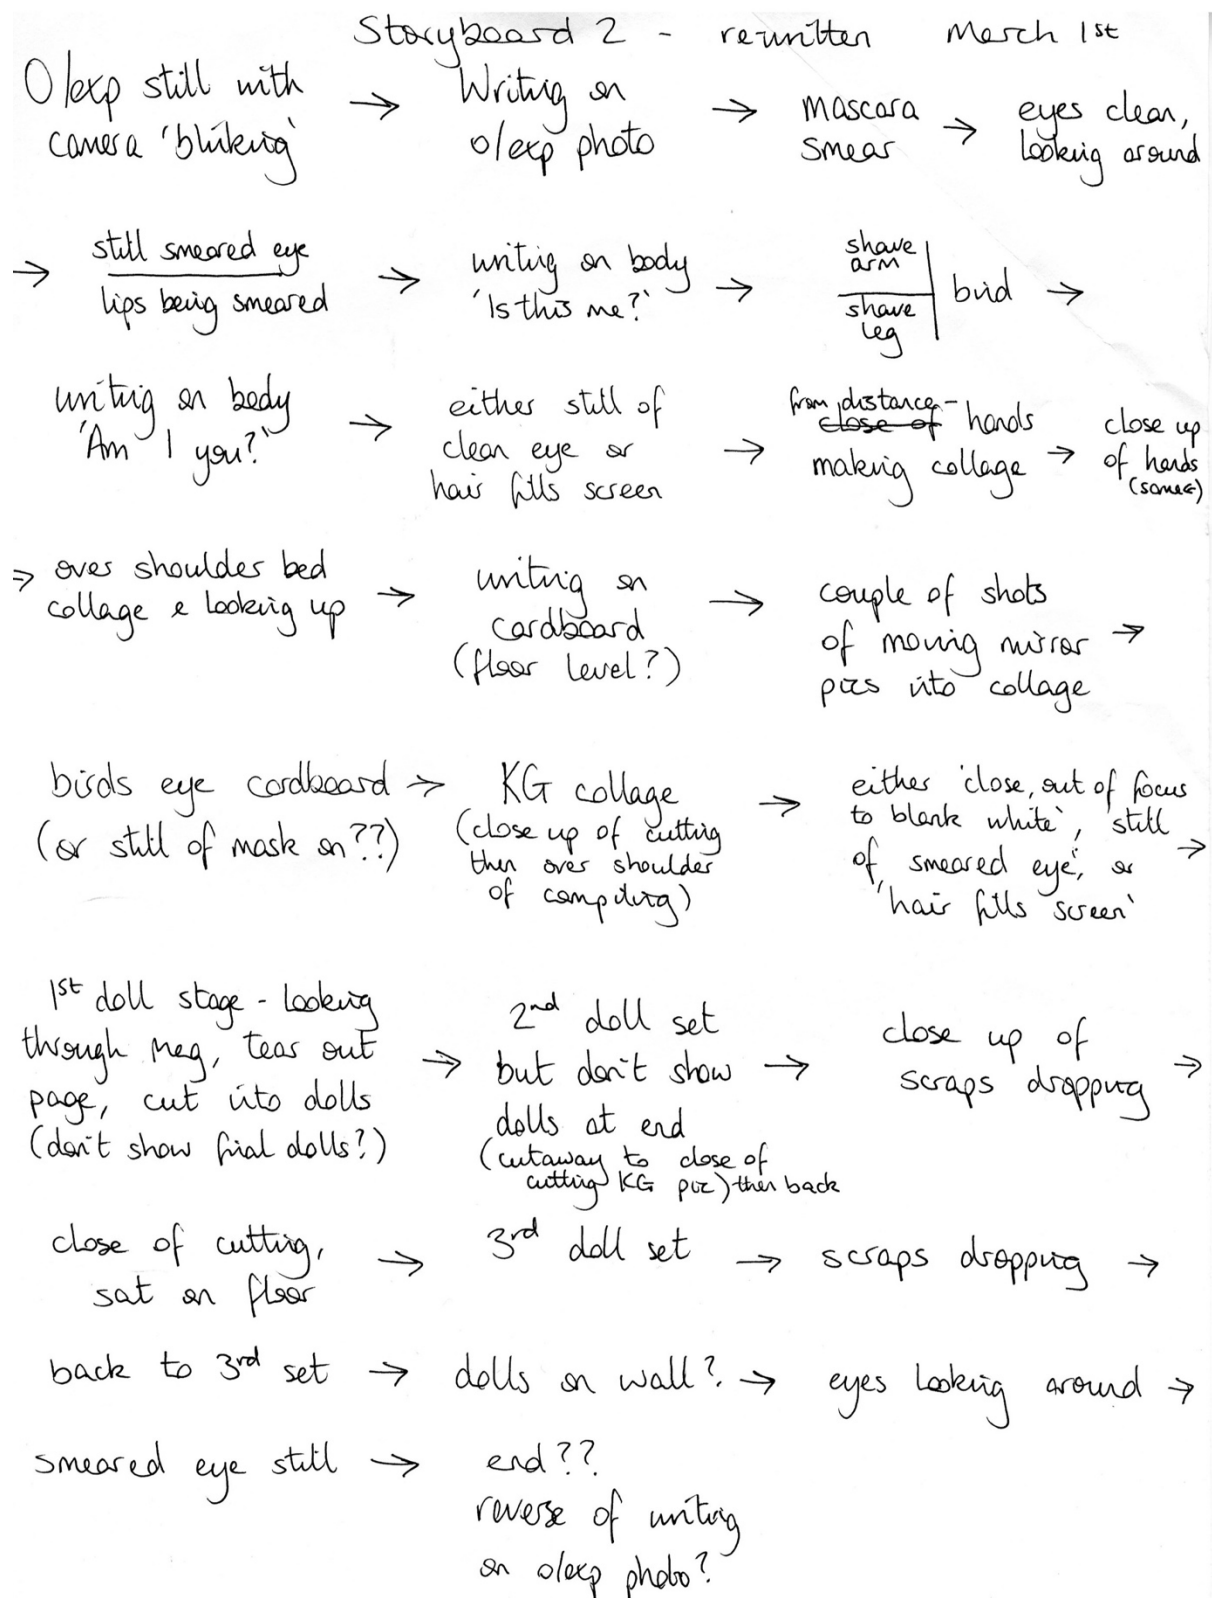 Storyboard 2 - rewritten March 1st
O/exp still with camera 'blinking' → Writing on o/exp photo → mascara smear → eyes clean, looking around
→ still smeared eye / lips being smeared → writing on body 'Is this me?' → shave arm / shave leg | bind →
writing on body 'Am I you?' → either still of clean eye or hair fills screen → from distance - close of hands making collage → close up of hands (same)
→ over shoulder bed collage & looking up → writing on cardboard (floor level?) → couple of shots of moving mirror pics into collage →
birds eye cardboard (or still of mask on??) → KG collage (close up of cutting then over shoulder of computing) → either 'close, out of focus to blank white', 'still of smeared eye', or 'hair fills screen' →
1st doll stage - looking through mag, tear out page, cut into dolls (don't show final dolls?) → 2nd doll set but don't show dolls at end (cutaway to close of cutting KG pic) then back → close up of scraps dropping →
close of cutting, sat on floor → 3rd doll set → scraps dropping →
back to 3rd set → dolls on wall? → eyes looking around →
smeared eye still → end?? reverse of writing on o/exp photo?